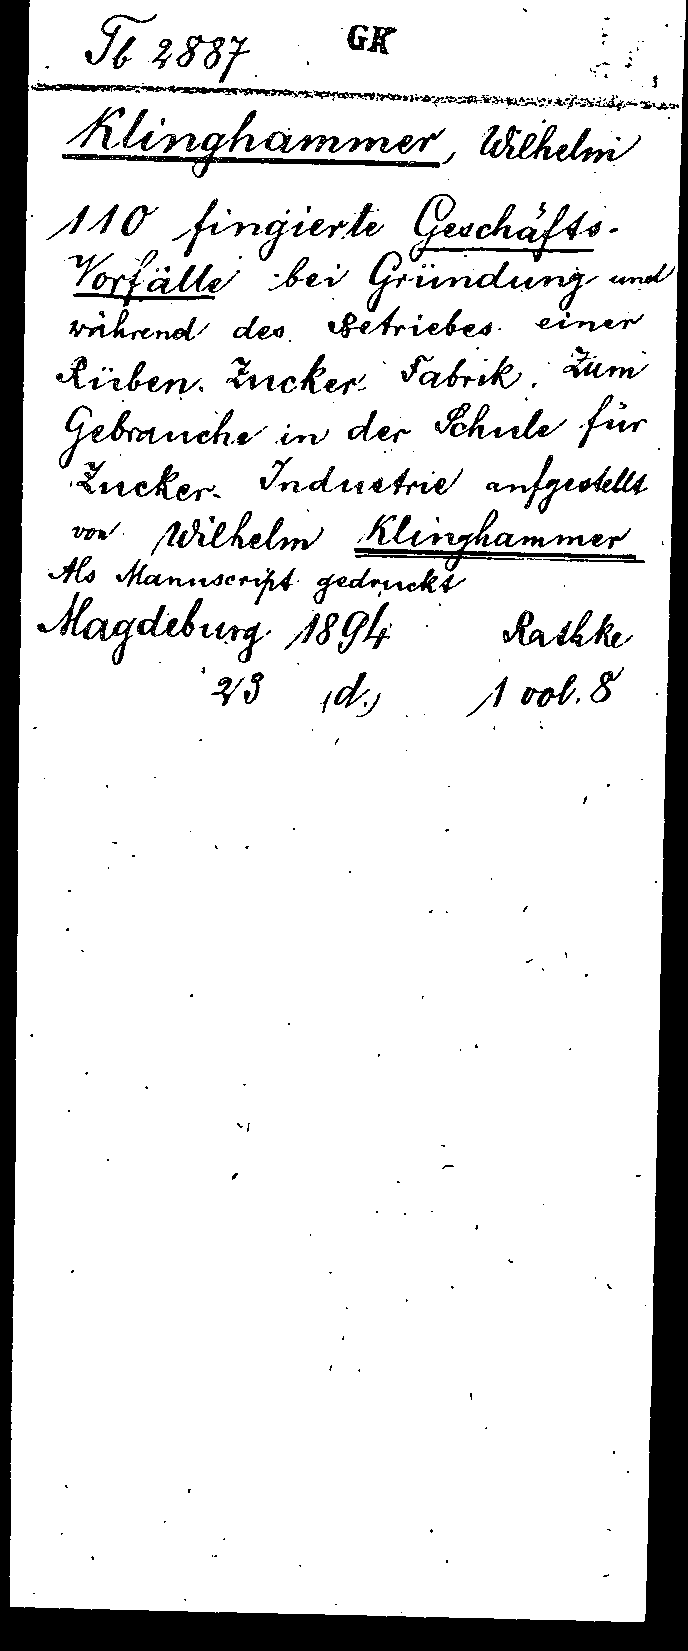 Tb 2887 GK
Klinghammer, Wilhelm
110 fingierte Geschäfts-
Vorfälle bei Gründung und
während des Betriebes einer
Rüben-Zucker-Fabrik. Zum
Gebrauche in der Schule für
Zucker-Industrie aufgestellt
von Wilhelm Klinghammer
Als Manuscript gedruckt
Magdeburg 1894 Rathke
23 (d.) 1 vol. 8